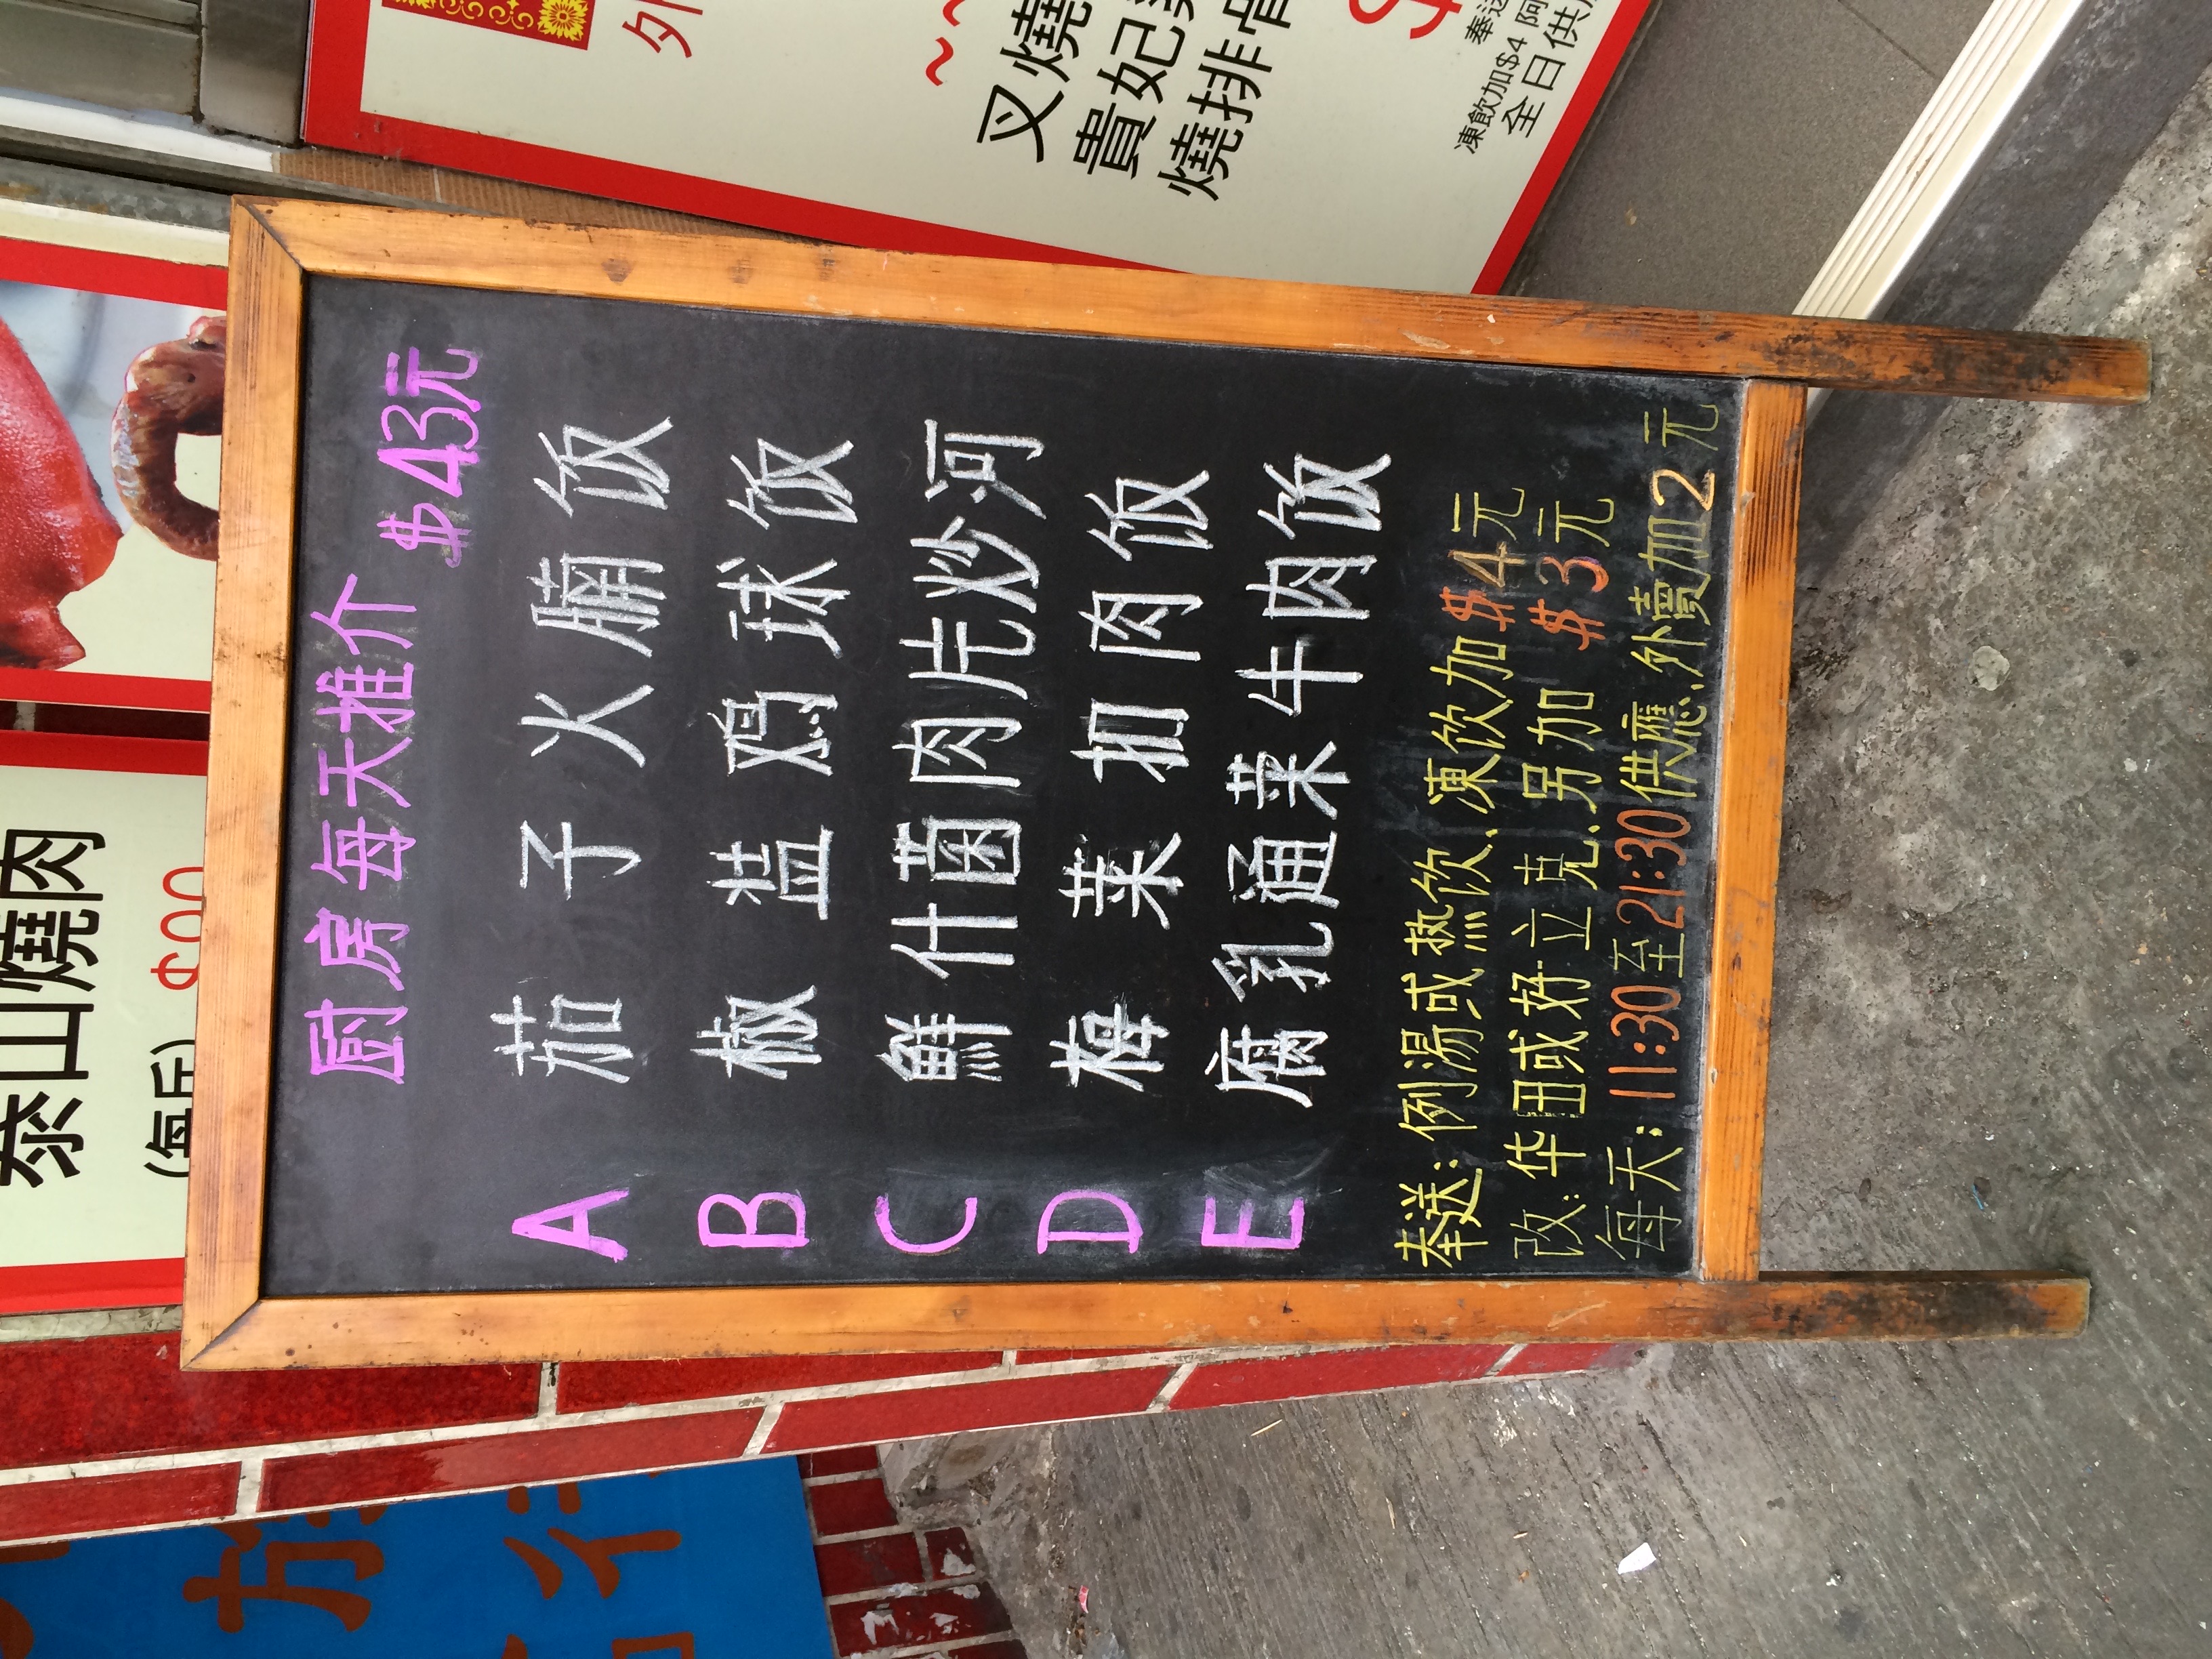 泰山燒肉
(每斤) $90
族
行
厨房每天推介
$43元
A 茄子火腩饭
B 椒盐鸡球饭
C 鮮什菌肉片炒河
D 梅菜扣肉饭
E 腐乳通菜牛肉饭
奉送:例湯或热饮.凍饮加$4元
改:华田或好立克.另加 $3元
每天:11:30至21:30供應.外賣加2元
外
~~
叉燒
貴妃
燒排骨
$
奉送
凍飲加$4 阿
全日供